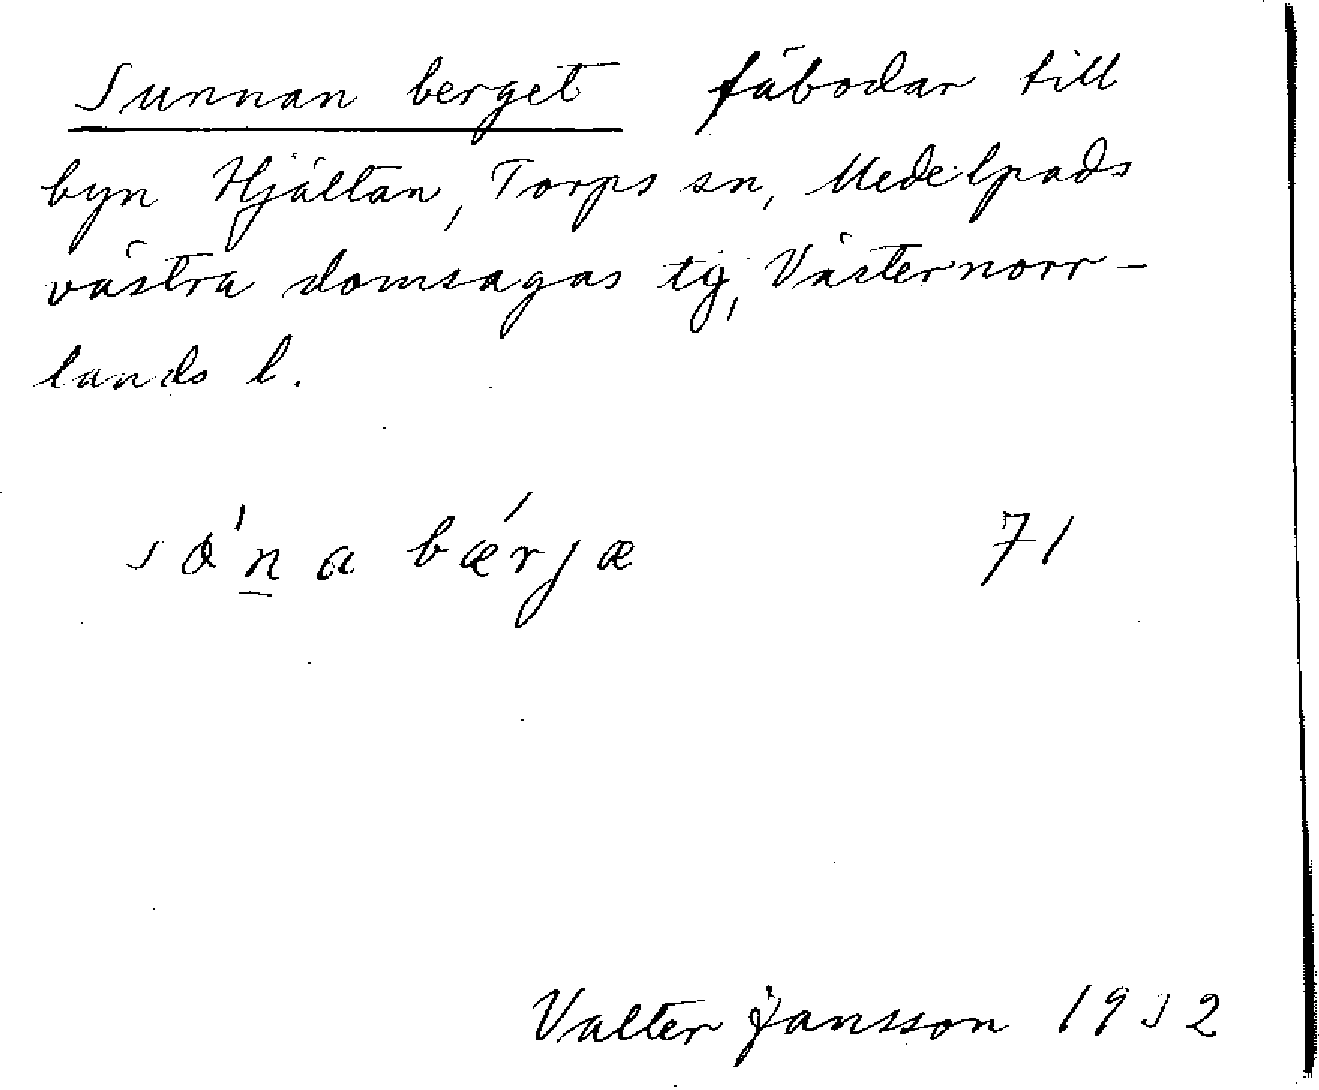 Sunnan berget fäbodar till
byn Hjältan, Torps sn, Medelpads
västra domsagas tg, Västernorr-
lands l.
bærjæ 71
Valter Jansson 1932